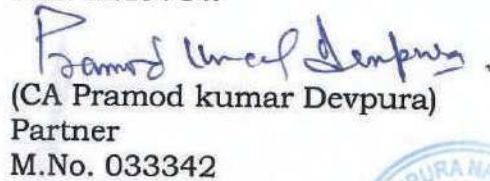 Pramod Kumar Devpura
(CA Pramod kumar Devpura)
Partner
M.No. 033342
PURA NA